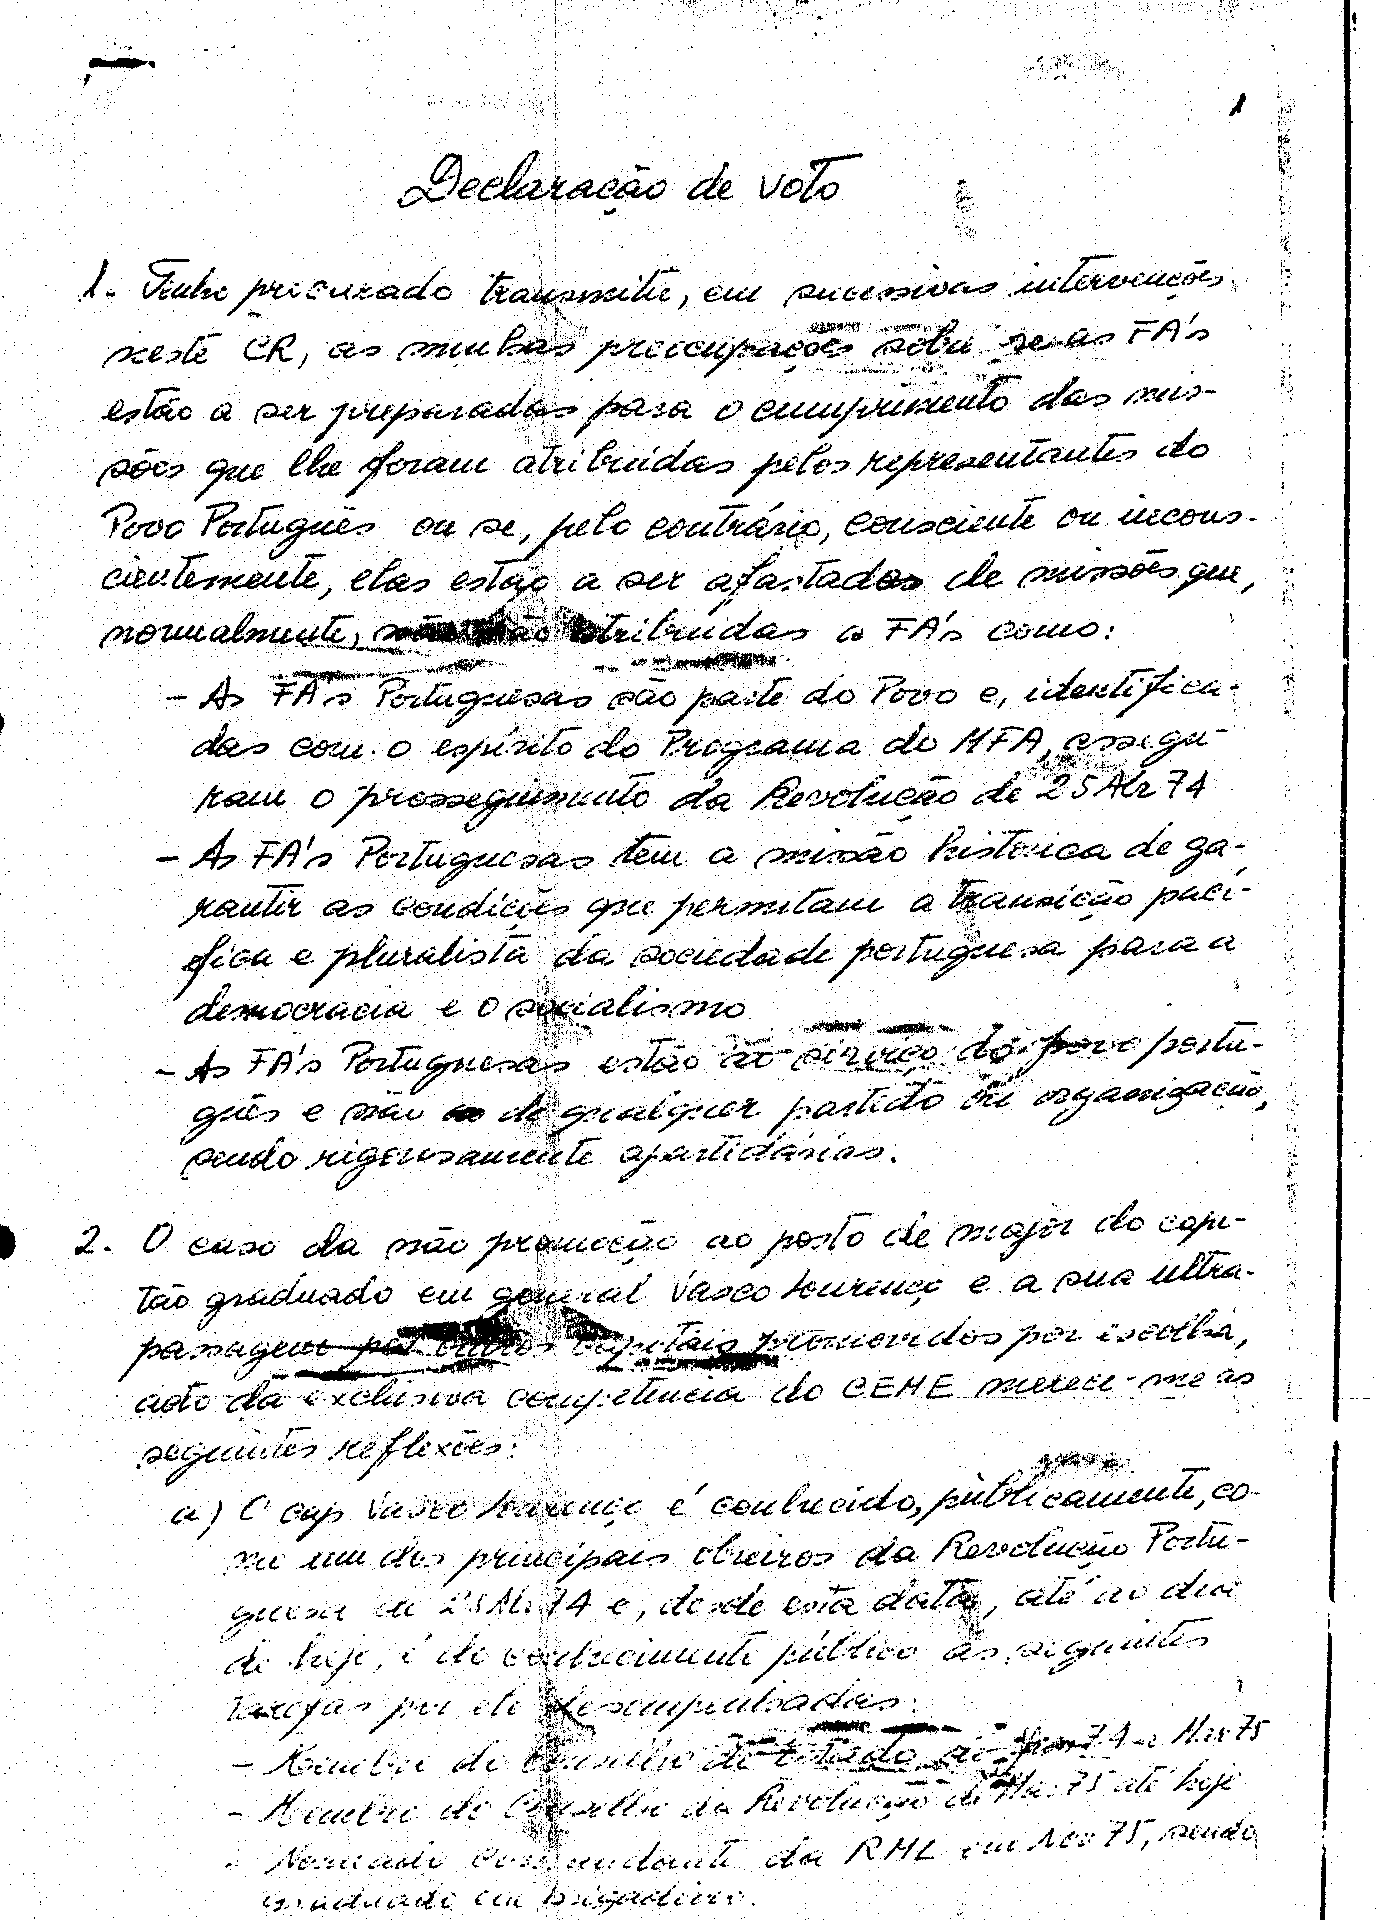 1
Declaração de voto
1. Tenho procurado transmitir, em sucessivas intervenções
neste CR, as minhas preocupações sobre se as FA's
estão a ser preparadas para o cumprimento das mis-
sões que lhe foram atribuidas pelos representantes do
Povo Português ou se, pelo contrário, consciente ou incons-
cientemente, elas estão a ser afastadas de missões que,
normalmente, não são atribuidas a FA's como:
- As FA's Portuguesas são parte do Povo e, identifica-
das com o espírito do Programa do MFA, assegu-
ram o prosseguimento da Revolução de 25 Abr 74
- As FA's Portuguesas têm a missão historica de ga-
rantir as condições que permitam a transição paci-
fica e pluralista da sociedade portuguesa para a
democracia e o socialismo
- As FA's Portuguesas estão ao serviço do povo portu-
guês e não de qualquer partido ou organização,
sendo rigorosamente apartidárias.
2. O caso da não promoção ao posto de major do capi-
tão graduado em general Vasco Lourenço e a sua ultra-
passagem por outros capitais promovidos por escolha,
acto da exclusiva competência do CEME merece-me as
seguintes reflexões:
a) O cap Vasco Lourenço é conhecido, públicamente, co-
mo um dos principais obreiros da Revolução Portu-
guesa em 25 Abr 74 e, desde esta data, até ao dia
de hoje, é do conhecimento público as seguintes
tarefas por ele desempenhadas:
- Membro do Conselho de Estado de 74 a Mar 75
- Membro do Conselho da Revolução de Mar 75 até hoje
- Nomeado comandante da RML em Nov 75, sendo
graduado em brigadeiro.